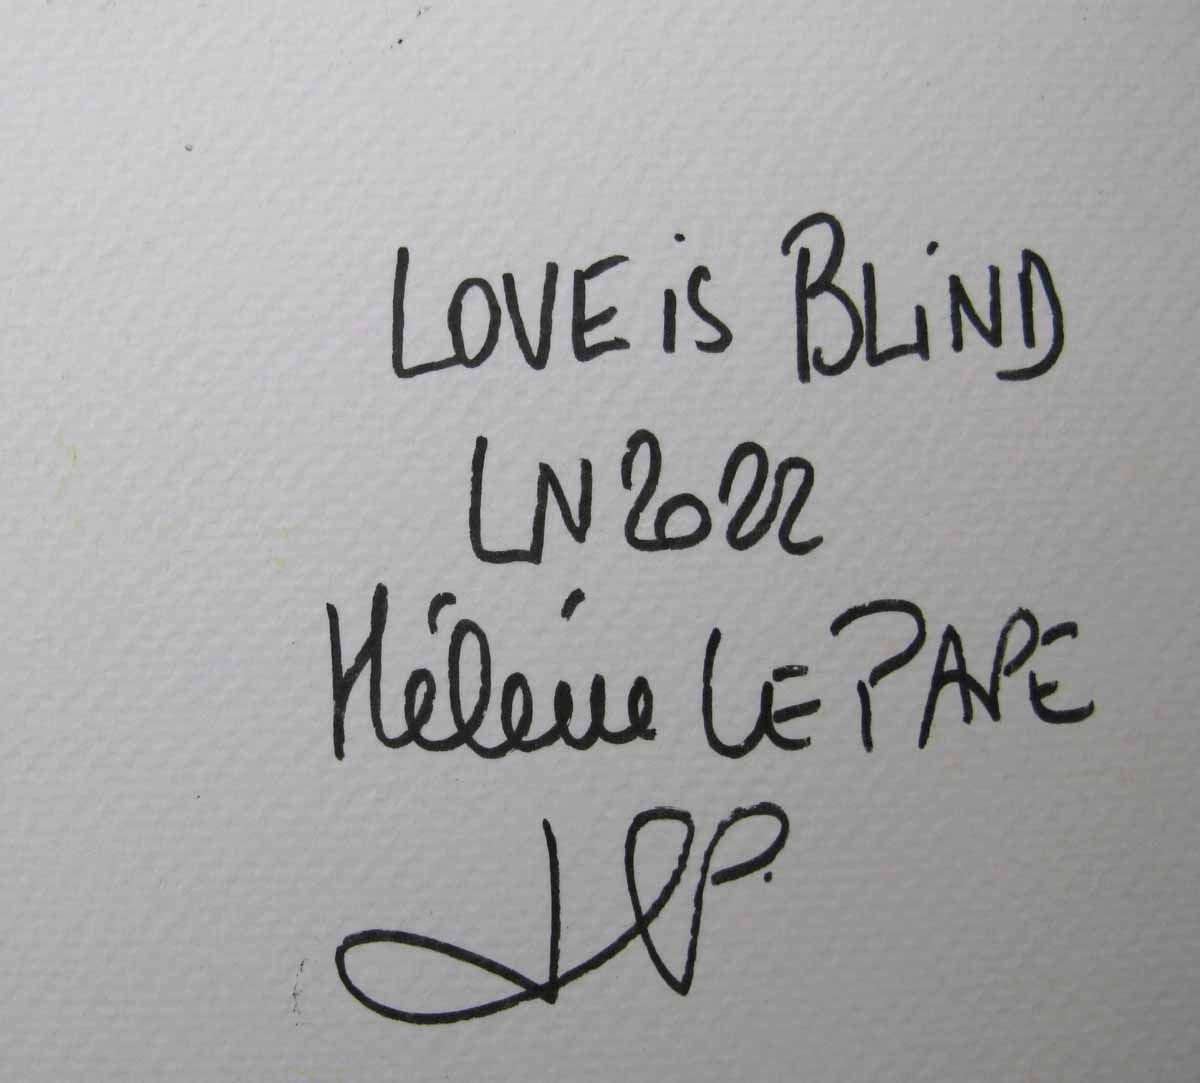 LOVE iS BLiND
LN2022
Hélène LE PAPE